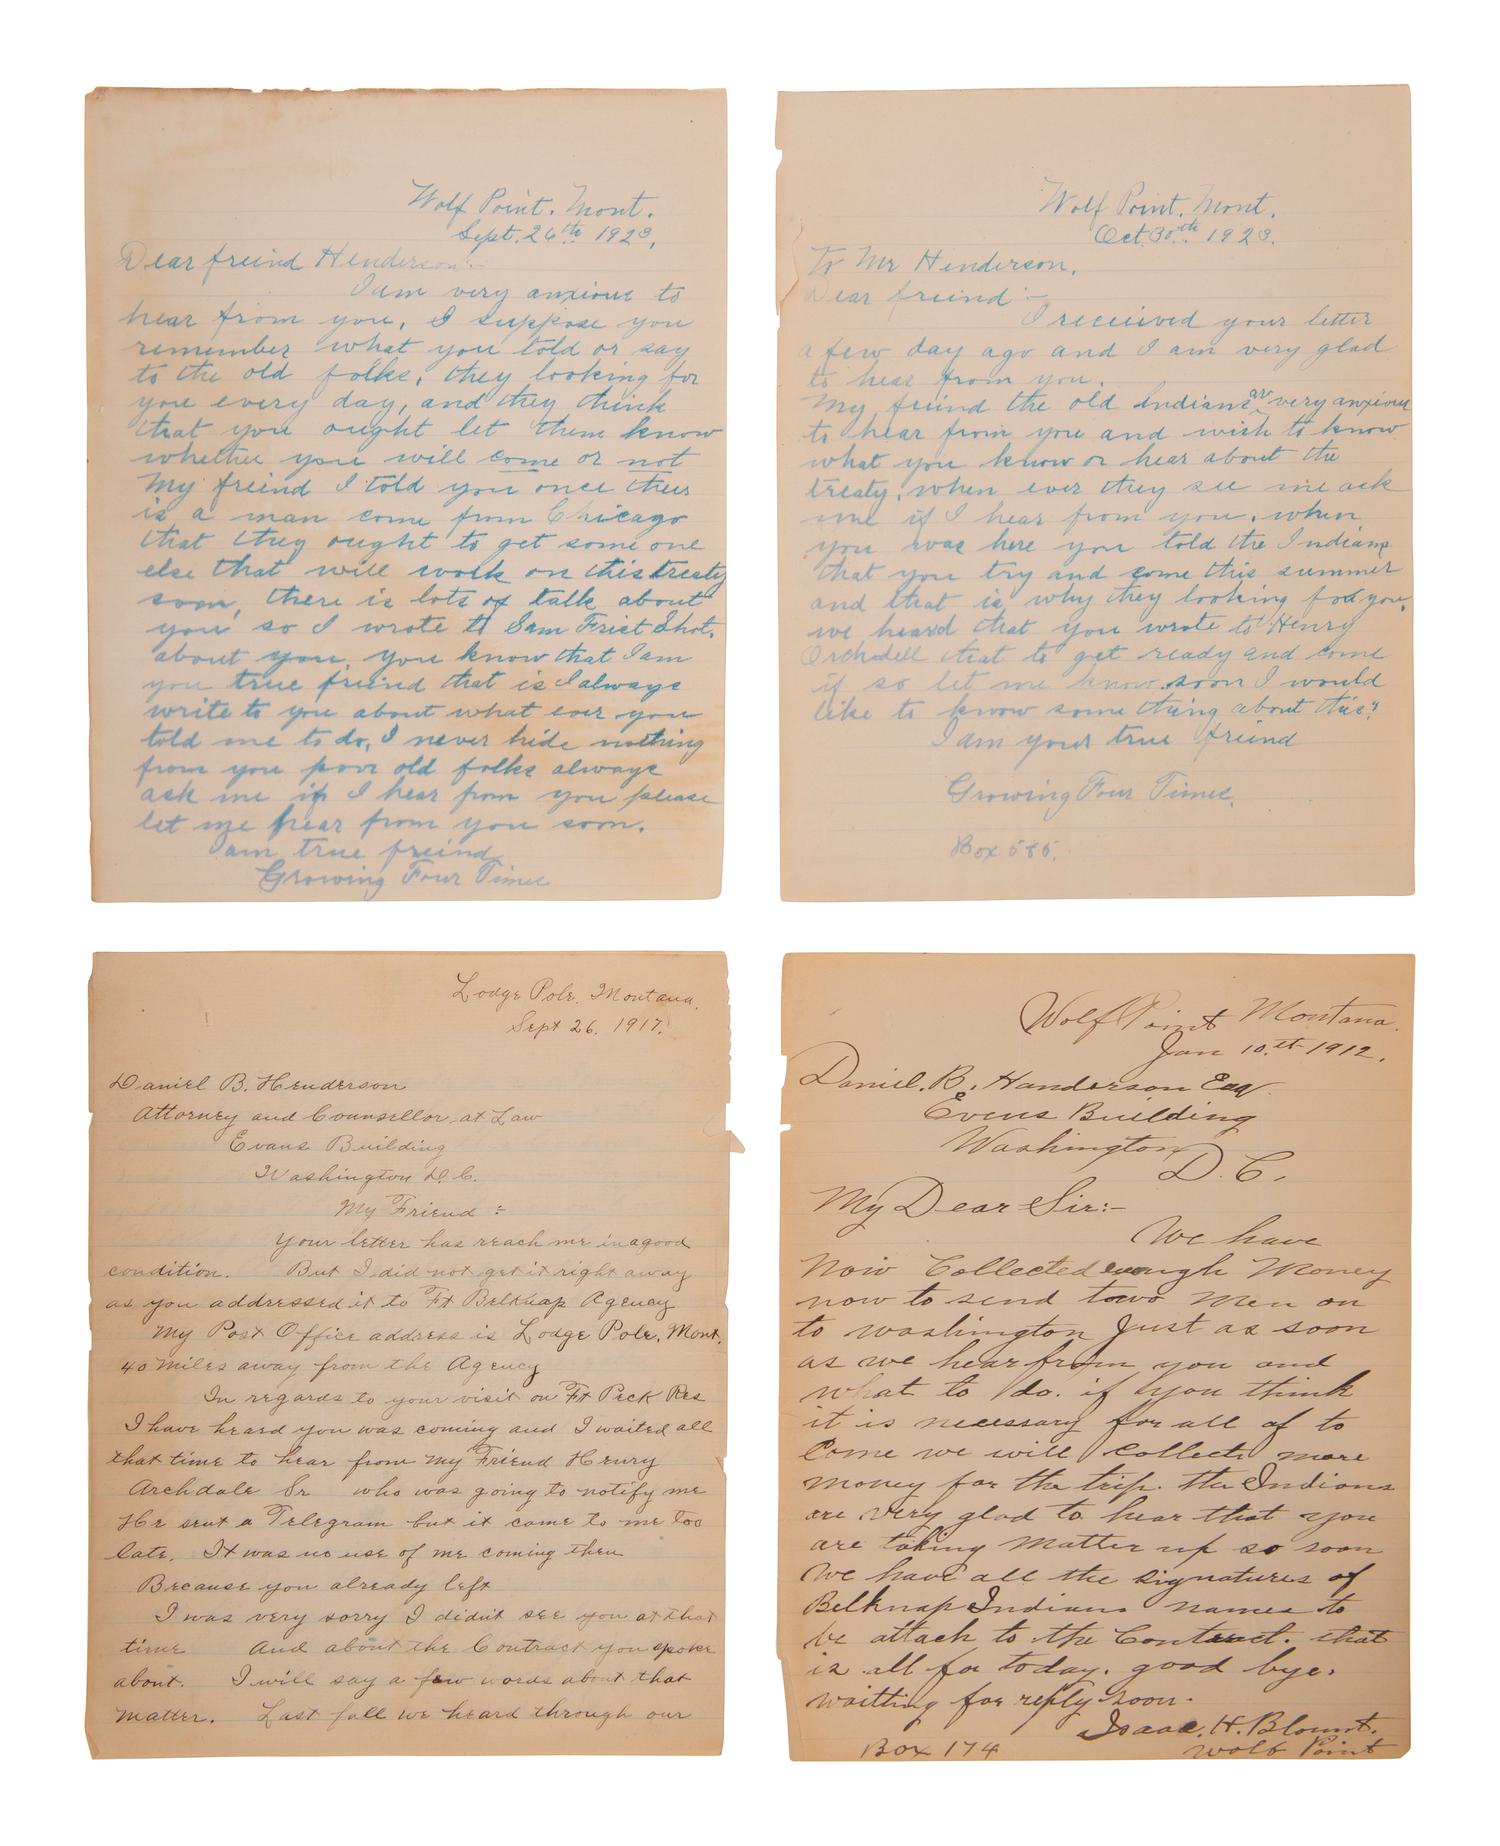 Wolf Point. Mont.
Sept. 26th 1923,
Dear freind Henderson:-
I am very anxious to
hear from you, I suppose you
remember what you told or say
to the old folks, they looking for
you every day, and they think
that you ought let them know
whether you will come or not
My freind I told you once thers
is a man come from Chicago
that they ought to get some one
else that will work on this treaty
soon, there is lots of talk about
you so I wrote to Sam Frist Shot.
about you, you know that I am
you true freind that is I always
write to you about what ever you
told me to do, I never hide nothing
from you poor old folks always
ask me if I hear from you please
let me hear from you soon.
I am true freind
Growing Four Times
Wolf Point. Mont.
Oct. 30th 1923.
To Mr Henderson,
Dear freind:-
I received your letter
a few day ago and I am very glad
to hear from you.
My freind the old Indians are very anxious
to hear from you and wish to know
what you know or hear about the
treaty, when ever they see me ask
me if I hear from you, when
you was here you told the Indians
that you try and come this summer
and that is why they looking for you,
we heard that you wrote to Henry
Orchdell that to get ready and come
if so let me know soon I would
like to know some thing about this?
I am your true freind
Growing Four Times,
Box 585.
Lodge Pole, Montana.
Sept 26. 1917.
Daniel B. Henderson
Attorney and Counsellor at Law
Evans Building
Washington D.C.
My Friend :-
Your letter has reach me in a good
condition. But I did not get it right away
as you addressed it to Ft Belknap Agency
My Post Office address is Lodge Pole, Mont.
40 miles away from the Agency
In regards to your visit on Ft Peck Res
I have heard you was coming and I waited all
that time to hear from my Friend Henry
Archdale Sr who was going to notify me
He sent a Telegram but it came to me too
late. It was no use of me coming then
Because you already left
I was very sorry I didnt see you at that
time And about the Contract you spoke
about. I will say a few words about that
matter. Last fall we heard through our
Wolf Point Montana.
Jan 10.th 1912.
Daniel. B. Handerson Esq.
Evens Building
Washington
D. C.
My Dear Sir:-
We have
Now Collected enough Money
now to send towo Men on
to washington Just as soon
as we hear from you and
what to do. if you think
it is necessary for all of to
Come we will Collecte more
money for the trip. the Indians
are very glad to hear that you
are taking Matter up so soon
We have all the signatures of
Belknap Indians names to
be attach to the Contract. that
is all for today. good bye.
waitting for reply soon.
Isaac. H. Blount.
Box 174 Wolf Point